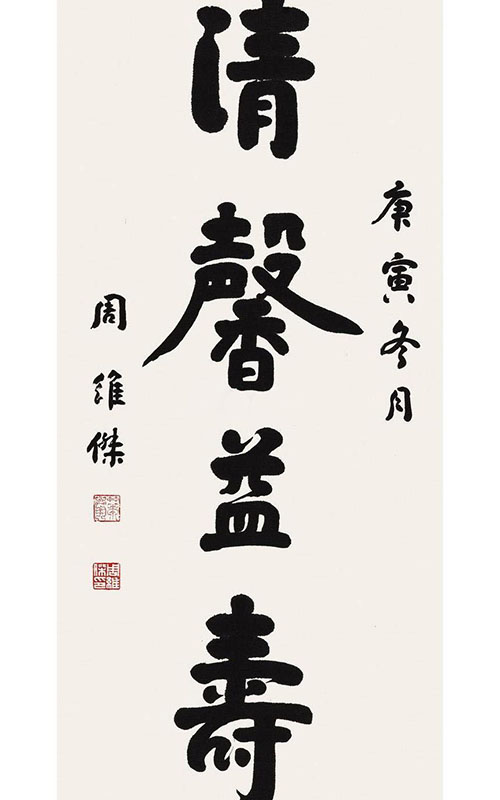 庚寅冬月
清馨益壽
周維傑